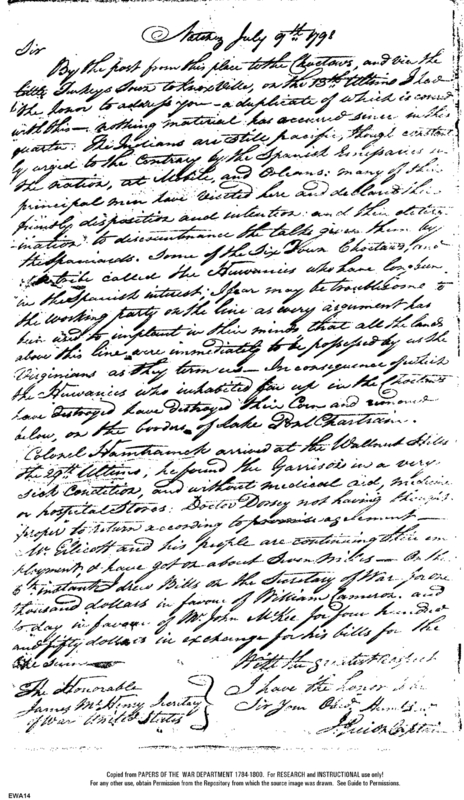 Natchez July 9th 1798
Sir
By the post from this place to the Choctaws, and via the
little Turkeys Town to Knoxville, on the 13th Ultimo I had
the honor to address you - a duplicate of which is covered
with this - nothing material has occurred since in this
quarter. The Indians are still pacific, though constant
ly urged to the Contrary by the Spanish Emissaries in
the nation, at Mobile and Orleans: many of their
principal men have visited here and declared their
friendly disposition and intention: and their deter-
mination to discountenance the talks given them by
the Spaniards. Some of the Six Town Choctaws, and
called the Huwanies who have long been
in the Spanish interest, I fear may be troublesome to
the working party on the line as every argument has
been used to implant in their minds that all the lands
above this line are immediately to be possessed by us the
Virginians as they term us - In consequence of which
the Huwanies who inhabited far up in the Choctaws
have destroyed have destroyed their Corn and removed
below, on the borders of lake Pont Chartrain.
Colonel Hamtramck arrived at the Wallnut Hills
the 29th Ultimo, he found the Garrison in a very
sick Condition, and without medical aid, medicine
or hospital Stores: Doctor Dorsey not having thought
proper to return according to promise agreement -
Mr. Ellicott and his people are continuing their em
ployment, & have got on about Seven Miles - On the
6th instant I drew Bills on the Secretary of War, for one
thousand dollars in favour of William Cameron. and
to day in favour of Mr. John McKee for four hundred
and fifty dollars in exchange for his bills for the
With the greatest respect
I have the honor to be
Sir Your Obed. Humb.
The Honorable
James McHenry Secretary
of War United States
Captain
Copied from PAPERS OF THE WAR DEPARTMENT 1784-1800. For RESEARCH and INSTRUCTIONAL use only!
For any other use, obtain Permission from the Repository from which the source image was drawn. See Guide to Permissions.
EWA14